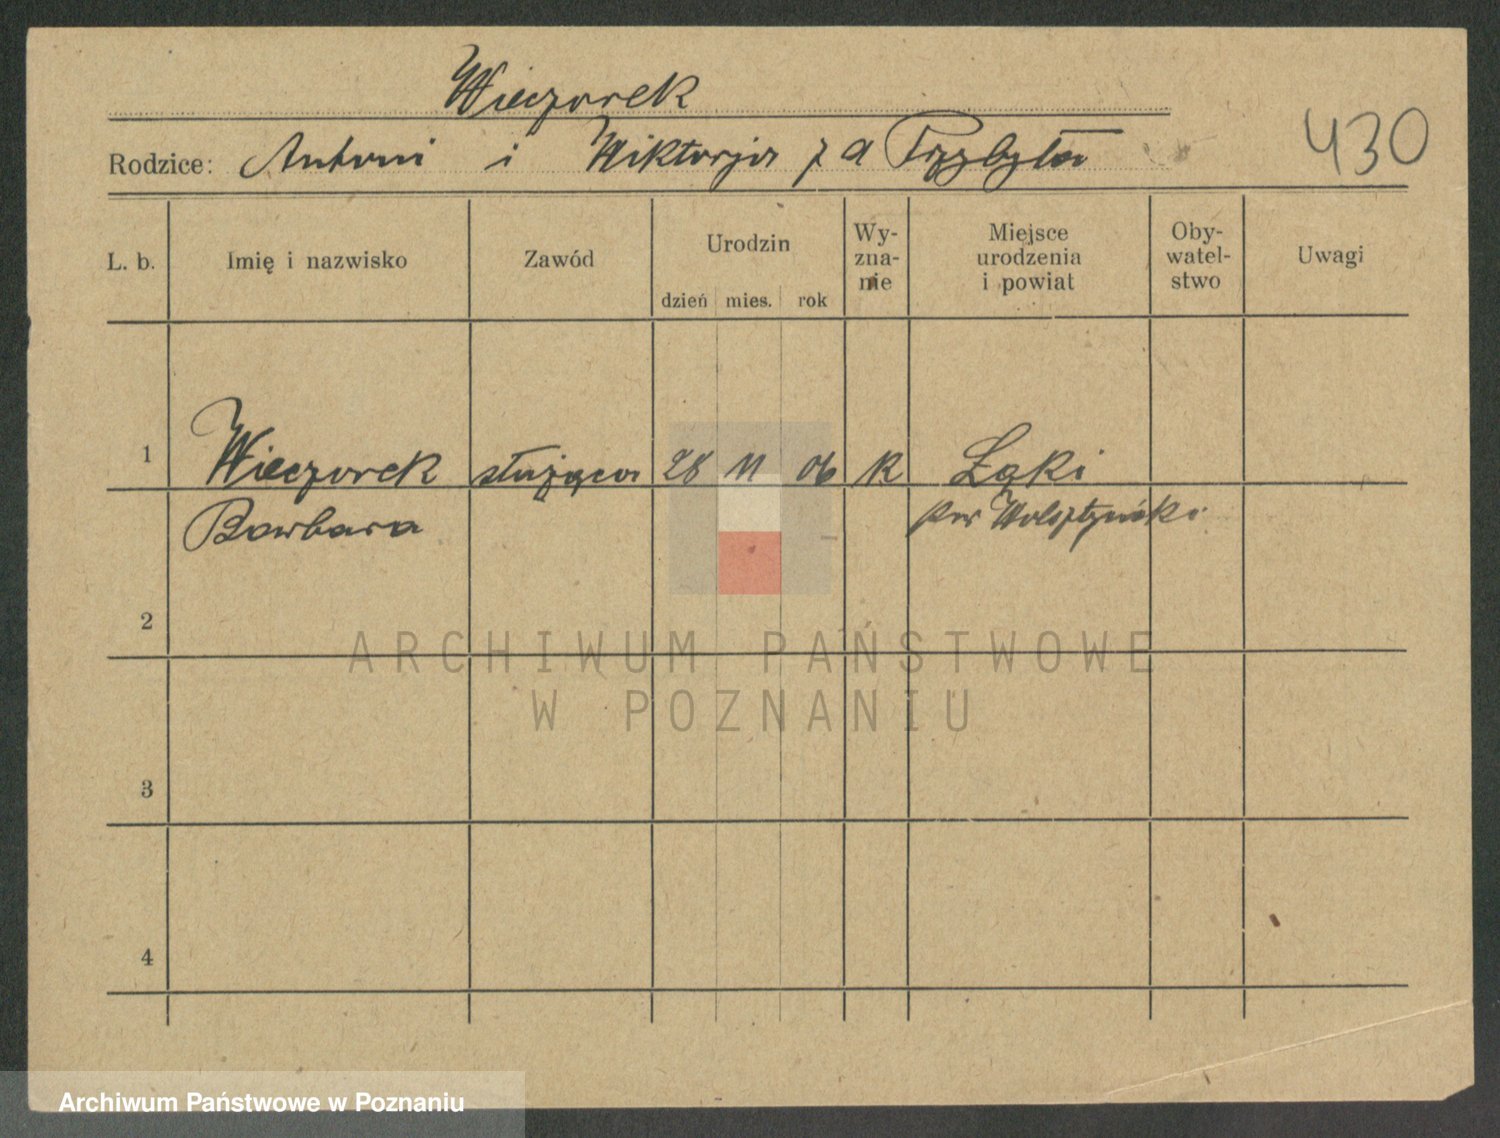 Wieczorek
430
Rodzice: Antoni i Wiktorja z d Przybyła
L. b. Imię i nazwisko Zawód Urodzin dzień mies. rok Wy-zna-nie Miejsce urodzenia i powiat Oby-watel-stwo Uwagi
1 Wieczorek służąca 28 11 06 k Łąki
Barbara pow Wolsztyński
2
ARCHIWUM PAŃSTWOWE
W POZNANIU
3
4
Archiwum Państwowe w Poznaniu